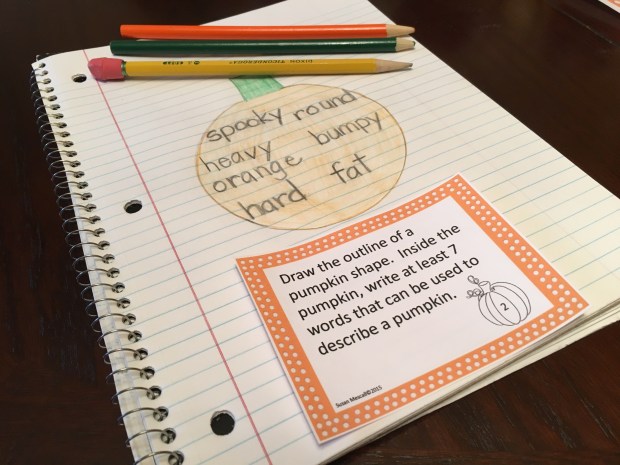 DIXON TICONDEROGA
spooky round
heavy bumpy
orange fat
hard
Draw the outline of a
pumpkin shape. Inside the
pumpkin, write at least 7
words that can be used to
describe a pumpkin.
2
Susan Mescall©2015